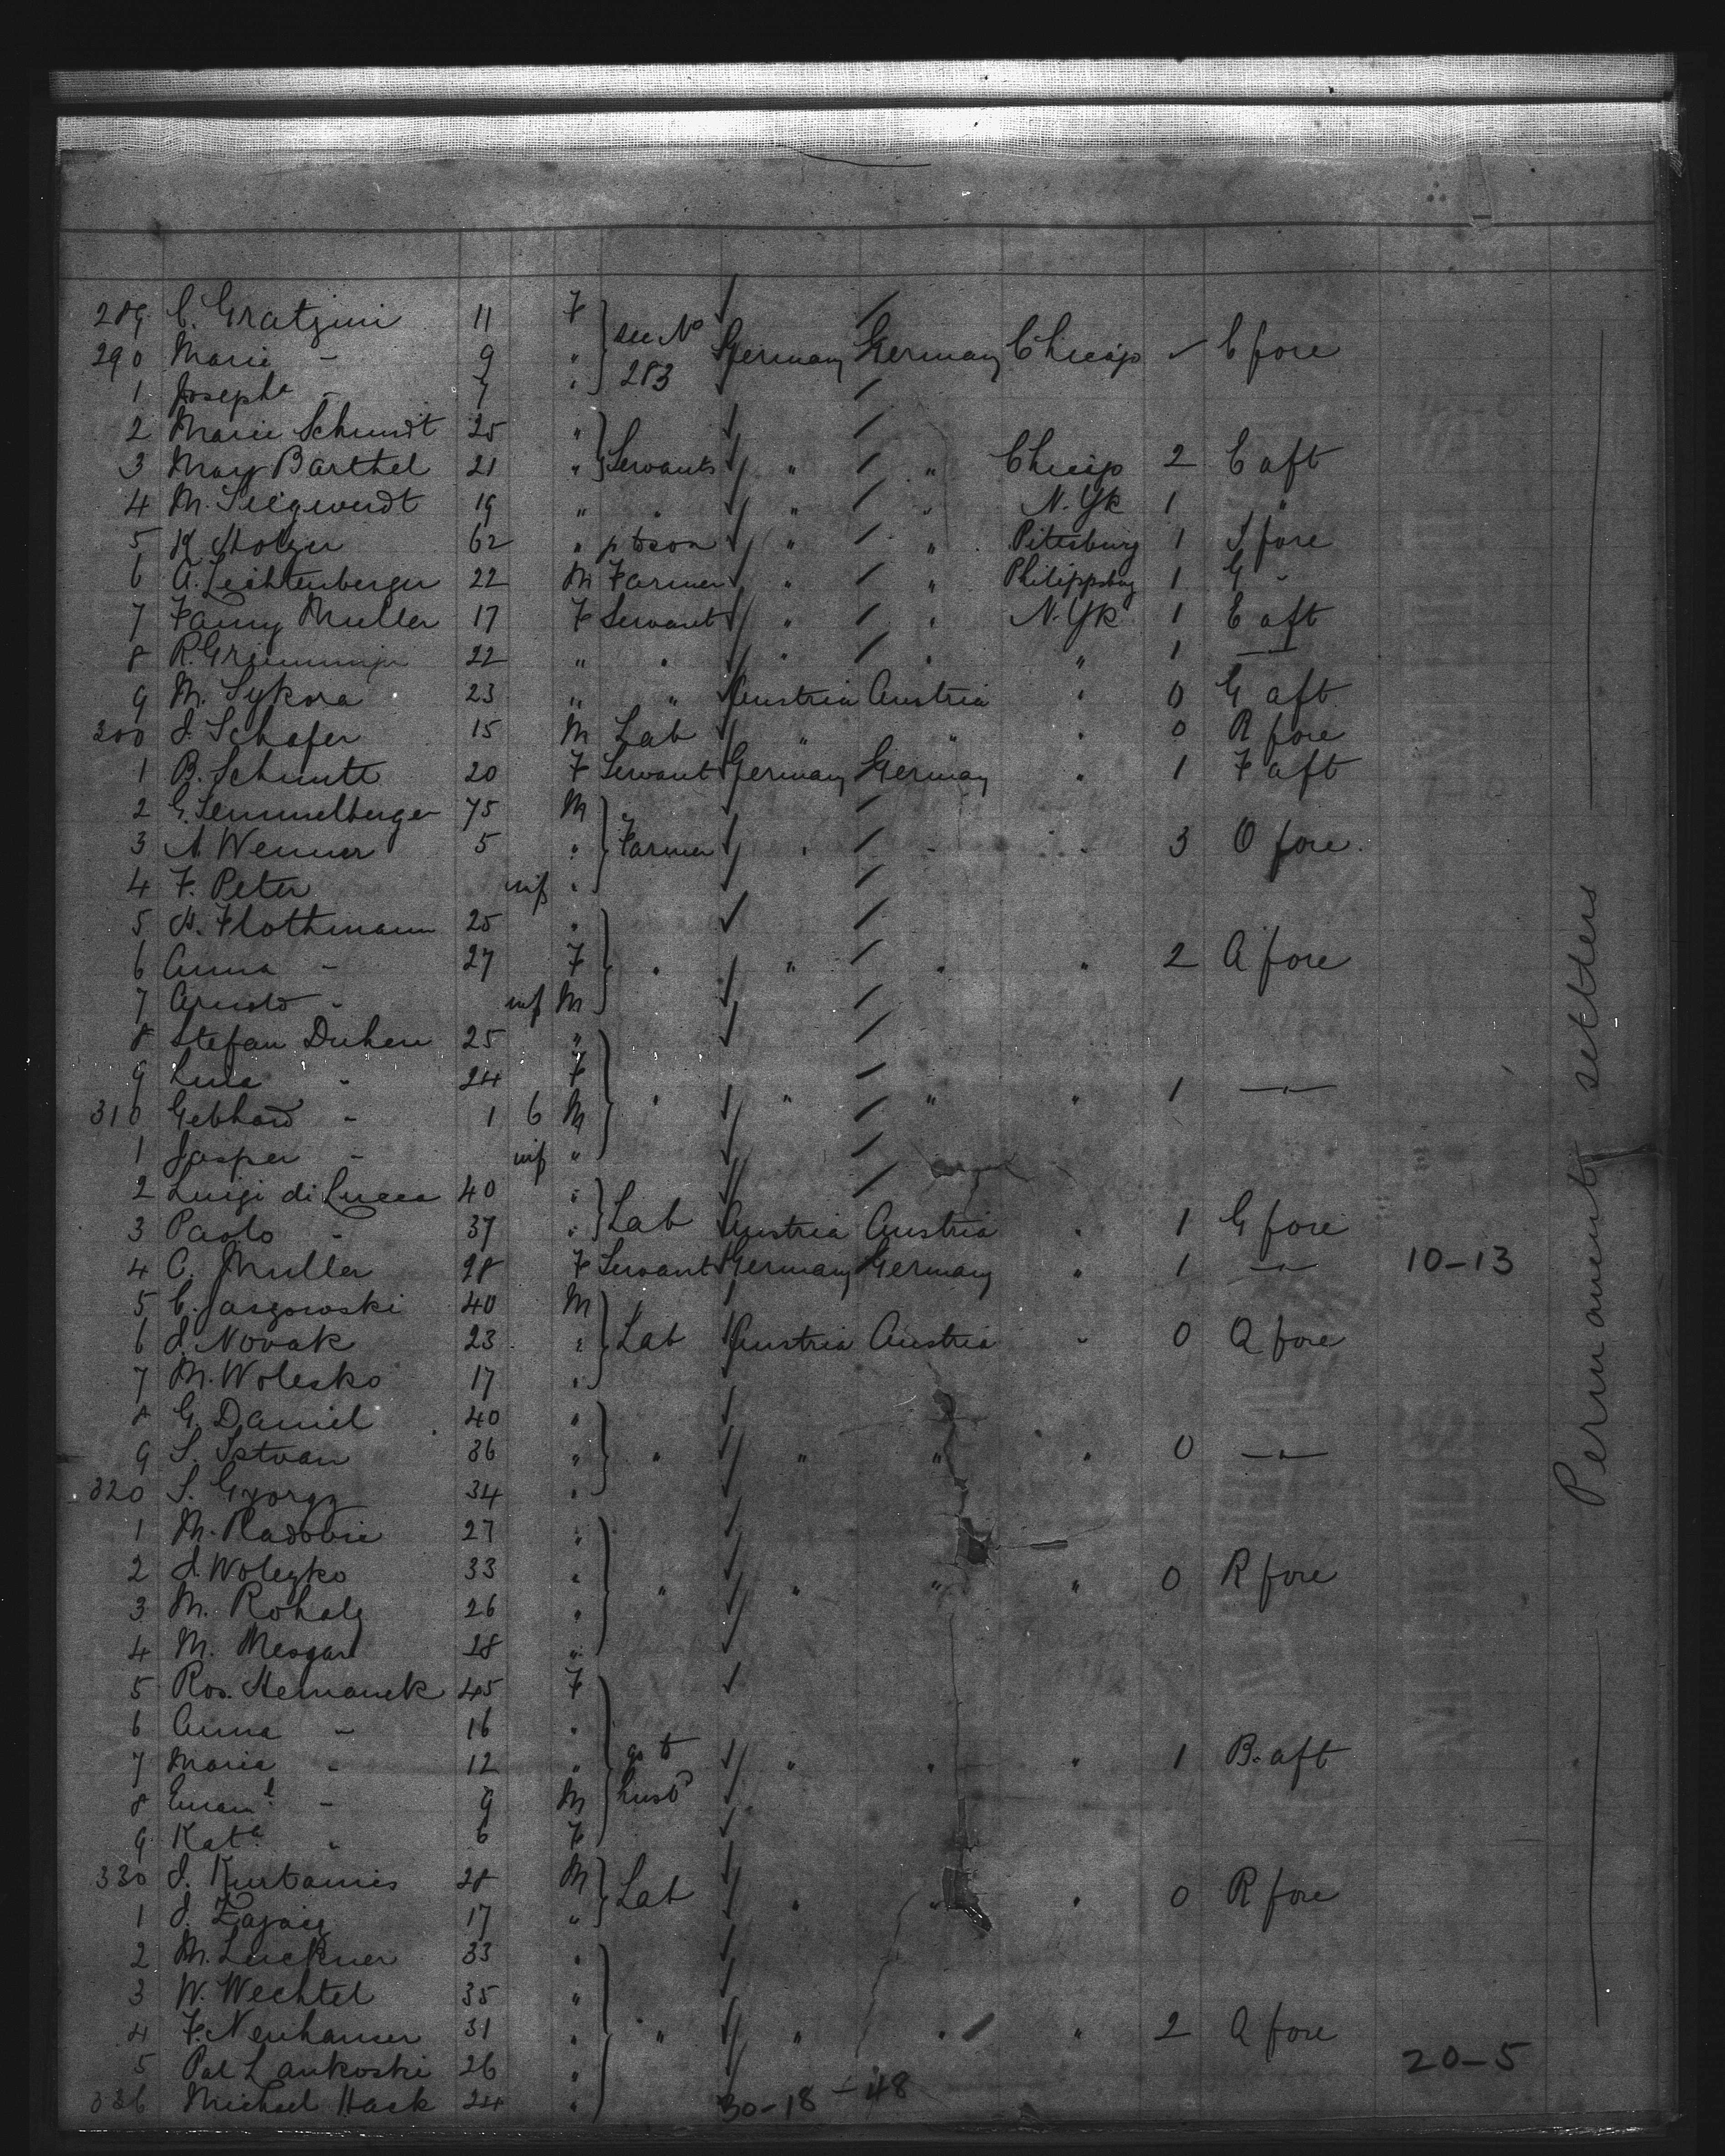 289 C. Gratzini 11 F
290 Marie - 9 " see No 283 Germany Germany Chicago ✓ C fore
1 Joseph^a - 7 "
2 Marie Schmidt 25 "
3 Mary Barthel 21 " Servants " " Chicago 2 E aft
4 M. 19 " " " " N. Yk 1 "
5 K 62 " " " Pittsburg 1 S fore
6 A. Leichtenberger 22 M Farmer " " Philippsbg 1 G -
7 Fanny Muller 17 F Servant " " N. Yk 1 E aft
8 R. 22 " " " " " 1 —"—
9 M. Sykora 23 " " Austria Austria " 0 G aft
300 J. Schafer 15 M Lab " " " 0 R fore
1 B. Schmitt 20 F Servant Germany Germany " 1 F aft
2 G. Semmelberger 75 M
3 A Wenner 5 " Farmer " " " 3 O fore
4 F. Peter inf "
5 H. Flothmann 25 "
6 Anna - 27 F " " " " 2 A fore
7 - inf M
8 Stefan Duhen 25 "
9 - 24 F
310 Gebhard - 1 6 M " " " " 1 —"—
1 Jasper - inf "
2 Luigi di Lucca 40 "
3 Paolo - 37 " Lab Austria Austria " 1 G fore
4 C. Muller 28 F Servant Germany Germany " 1 —"— 10-13
5 C. Jasgowski 40 M
6 J. Novak 23 " Lab Austria Austria " 0 Q fore
7 M. Wolesko 17 "
8 G. Daniel 40 "
9 S. Istvan 36 " " " " " 0 —"—
320 S. Gyorgy 34 "
1 M. Radovic 27 "
2 J. Woleyko 33 " " " " " 0 R fore
3 M. Rohaly 26 "
4 M. 28 "
5 Ros. Hemanek 45 F
6 Anna - 16 "
7 Maria - 12 " go to husbd " " " 1 B. aft
8 Eman^l - 9 M
9 Kat^a - 6 F
330 J. 28 M
1 J. 17 " Lab " " " 0 R fore
2 M. Luckner 33 "
3 W. Wechtel 35 "
4 F. Neuhauser 31 " " " " " 2 Q fore
5 Pal Lankoski 26 " 20-5
336 Michael Hack 24 " 30-18-48
Permanent settlers